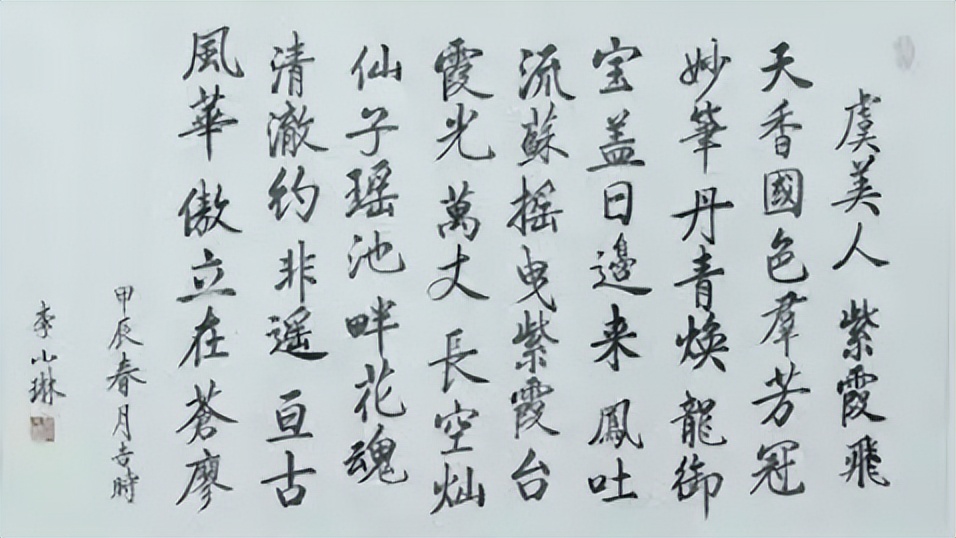 虞美人 紫霞飛
天香國色羣芳冠
妙筆丹青焕龍御
宝盖日邊来 鳳吐
流蘇摇曳紫霞台
霞光萬丈長空灿
仙子瑶池畔花魂
清澈约非遥 亘古
風華 傲立在蒼廖
甲辰春月吉時
李小琳